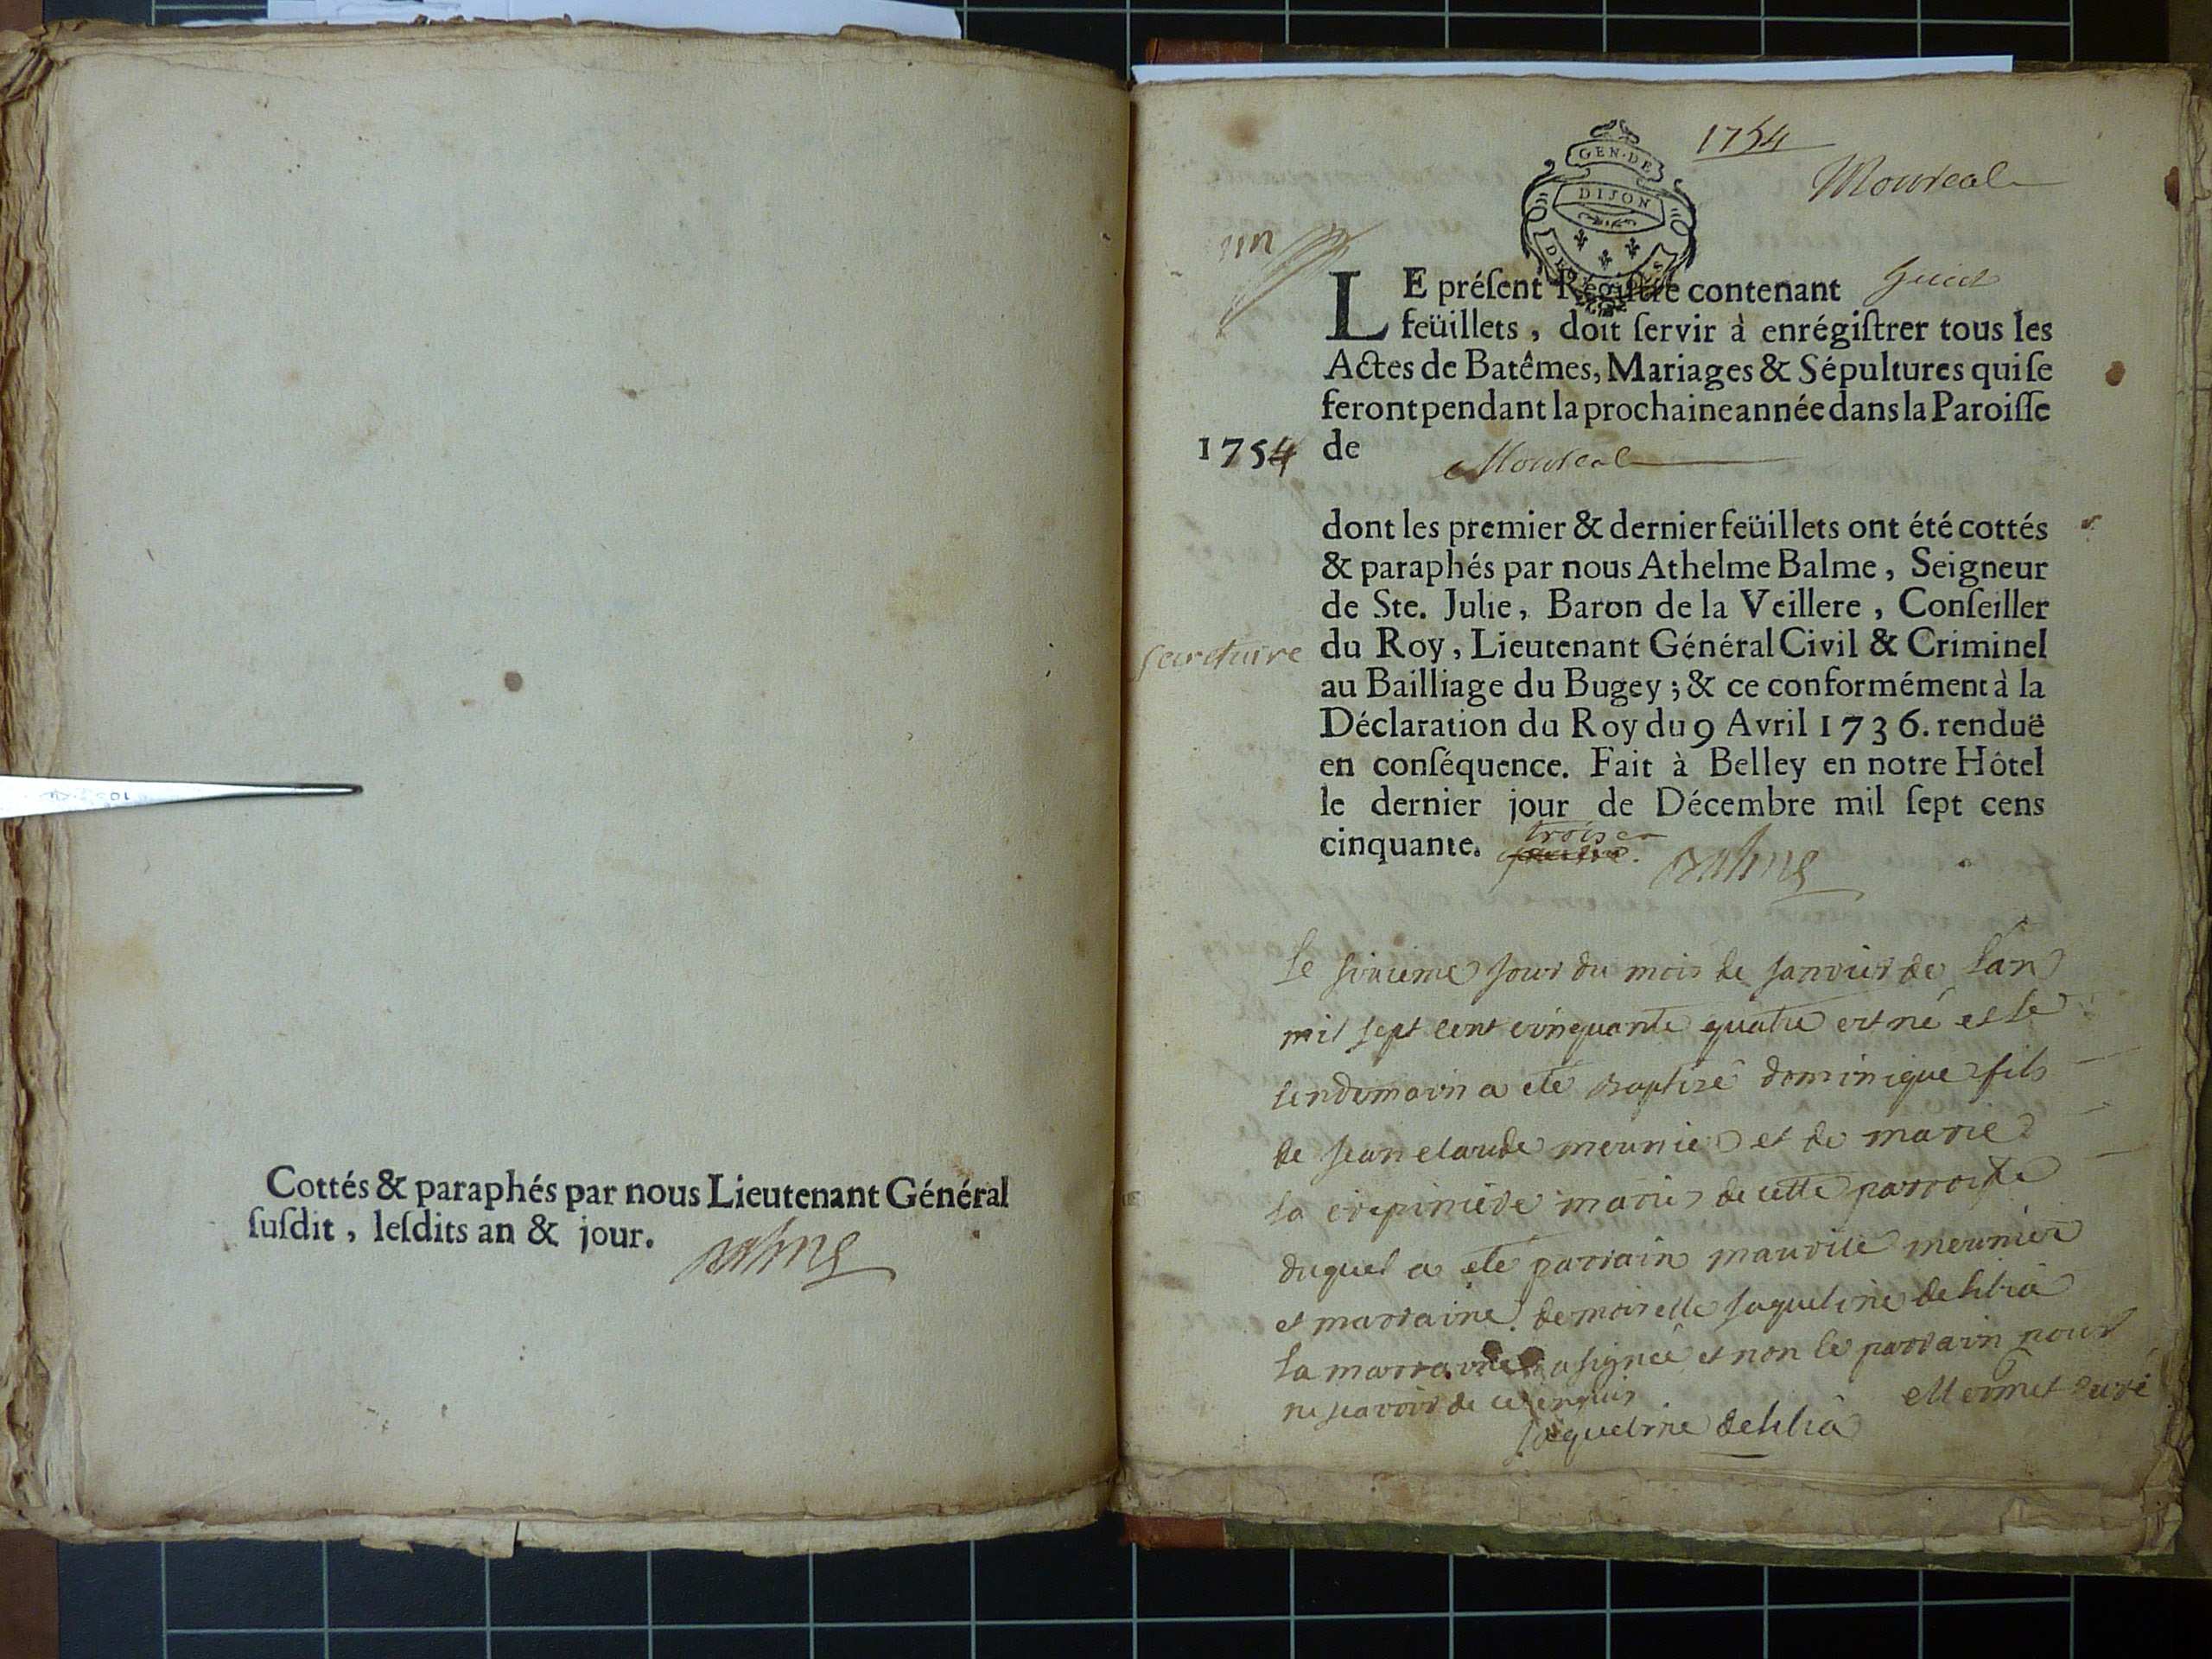 Cottés & paraphés par nous Lieutenant Général
ſuſdit, leſdits an & jour.
Balme
1754
Montreal
GEN·DE
DIJON
un
LE préſent Régiſtre contenant huict
feüillets, doit ſervir à enrégiſtrer tous les
Actes de Batêmes, Mariages & Sépultures qui ſe
feront pendant la prochaine année dans la Paroiſſe
1754 de Montreal
dont les premier & dernier feüillets ont été cottés
& paraphés par nous Athelme Balme, Seigneur
de Ste. Julie, Baron de la Veillere, Conſeiller
du Roy, Lieutenant Général Civil & Criminel
au Bailliage du Bugey; & ce conformément à la
Déclaration du Roy du 9 Avril 1736. renduë
en conſéquence. Fait à Belley en notre Hôtel
le dernier jour de Décembre mil ſept cens
cinquante. trois
Balme
le sixieme jour du mois de janvier de l'an
mil sept cent cinquante quatre est né et le
lendemain a eté baptizé dominique fils
de jean claude meunier et de marie
la crepiniere mariés de cette parroisse
duquel a eté parrain maurice meunier
et marraine demoiselle jaqueline delilia
la marraine a signée et non le parrain pour
ne scavoir de ce enquis
Mermet curé
jaqueline delilia